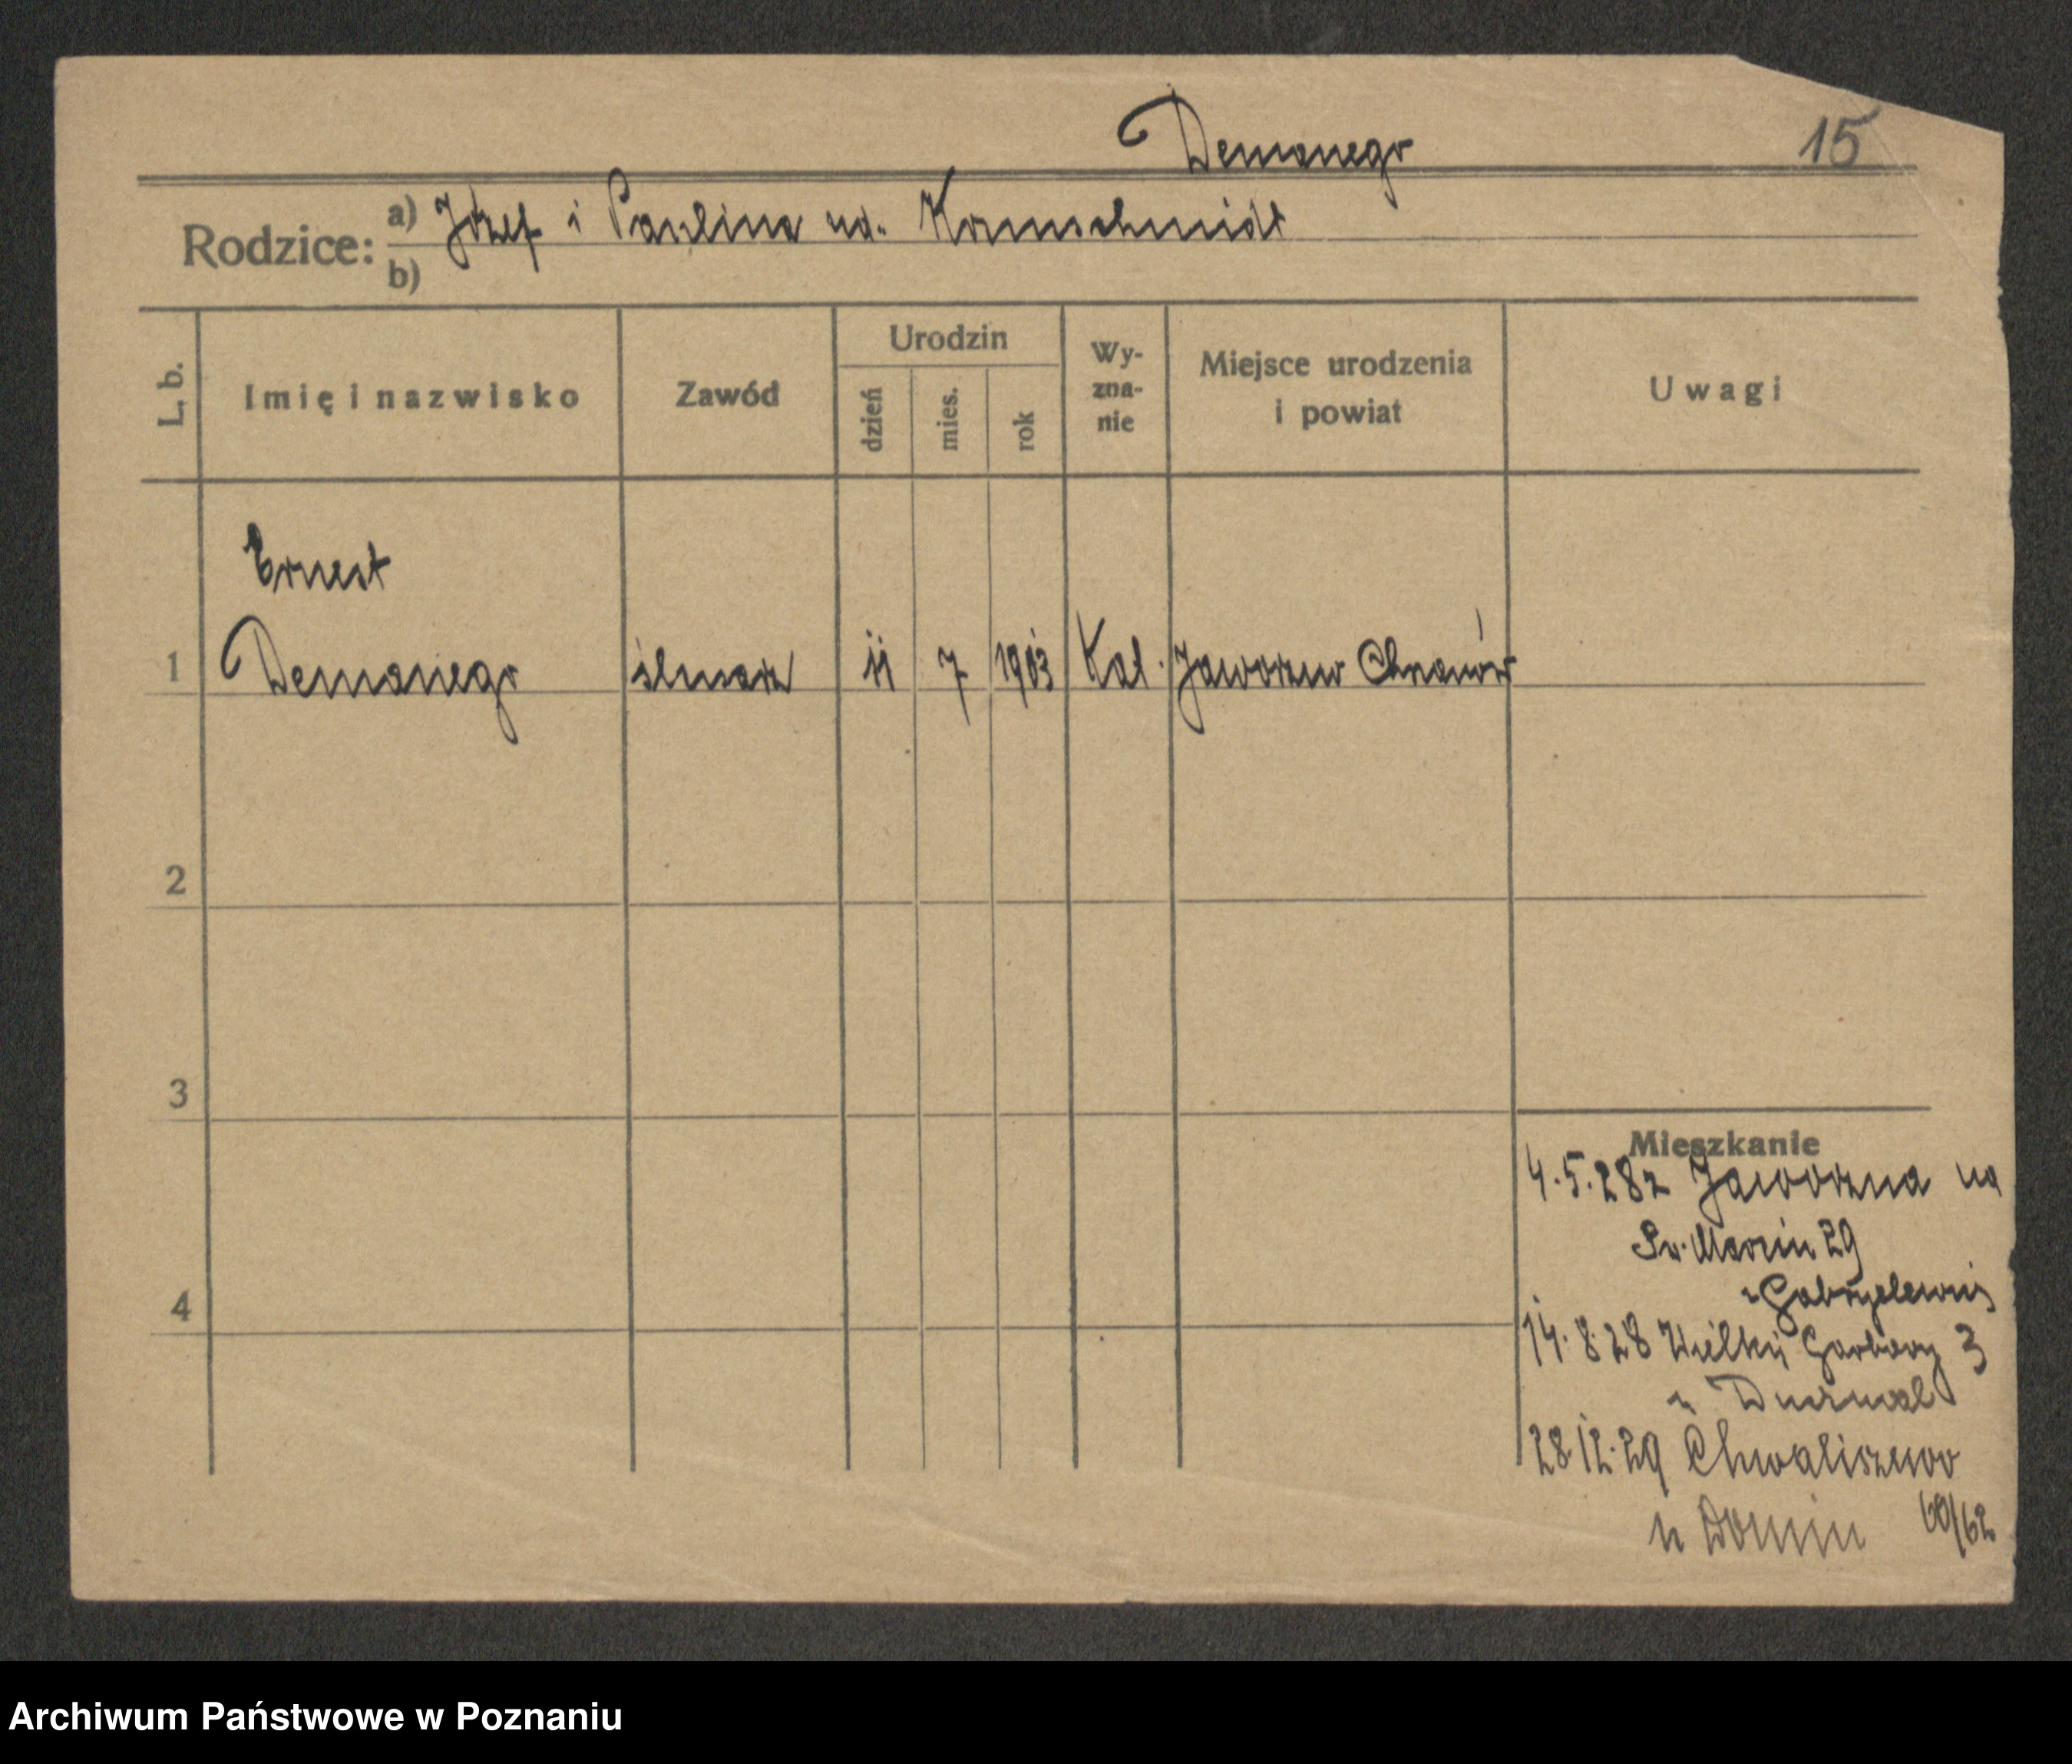 Demanego 15
Rodzice: a) Józef i Paulina ur. Kornschmidt
b)
L. b. Imię i nazwisko Zawód Urodzin dzień mies. rok Wy-zna-nie Miejsce urodzenia i powiat Uwagi
Ernest
1 Demanego ślusarz 11 7 1903 Kat. Jaworzno Chrzanów
2
3
Mieszkanie
4.5.28 z Jaworzna na
Św. Marcin 29
4
14.8.28 Wielkie Garbary 3
28.12.29 Chwaliszewo
u Domin 60/62
Archiwum Państwowe w Poznaniu